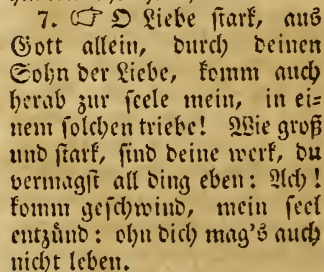 7. ☞ O Liebe stark, aus
Gott allein, durch deinen
Sohn der Liebe, komm auch
herab zur seele mein, in ei=
nem solchen triebe! Wie groß
und stark, sind deine werk, du
vermagst all ding eben: Ach!
komm geschwind, mein seel
entzünd: ohn dich mag's auch
nicht leben.